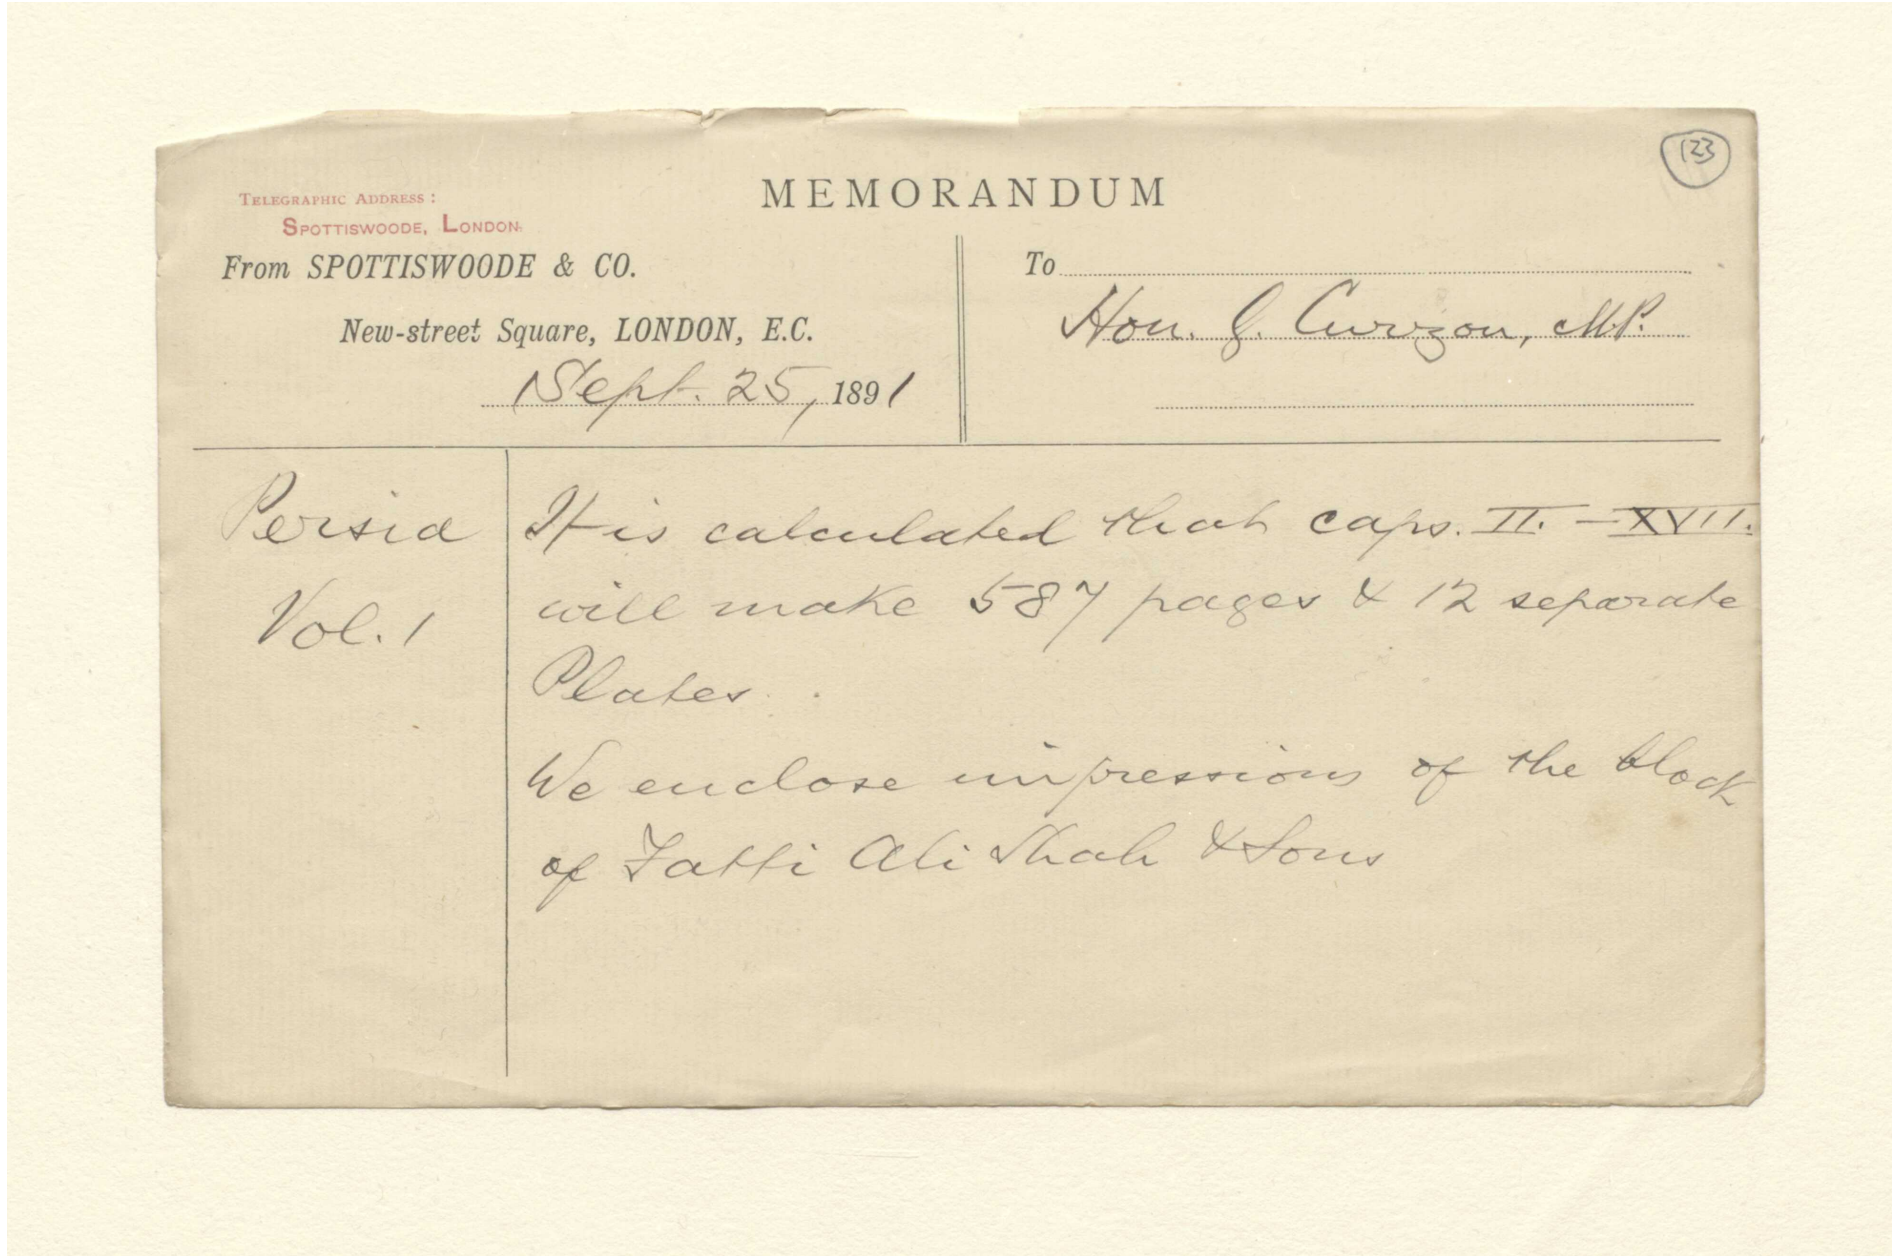 123
MEMORANDUM
TELEGRAPHIC ADDRESS:
SPOTTISWOODE, LONDON.
From SPOTTISWOODE & CO.
New-street Square, LONDON, E.C.
Sept. 25, 1891
To
Hon. G. Curzon, M.P.
Persia
Vol. 1
It is calculated that caps. II. – XVII.
will make 587 pages & 12 separate
Plates.
We enclose impressions of the block
of Fatti Ali Shah & Sons